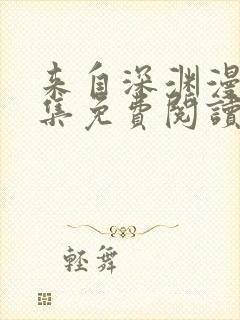 来自深渊漫
集免費閱讀
輕舞